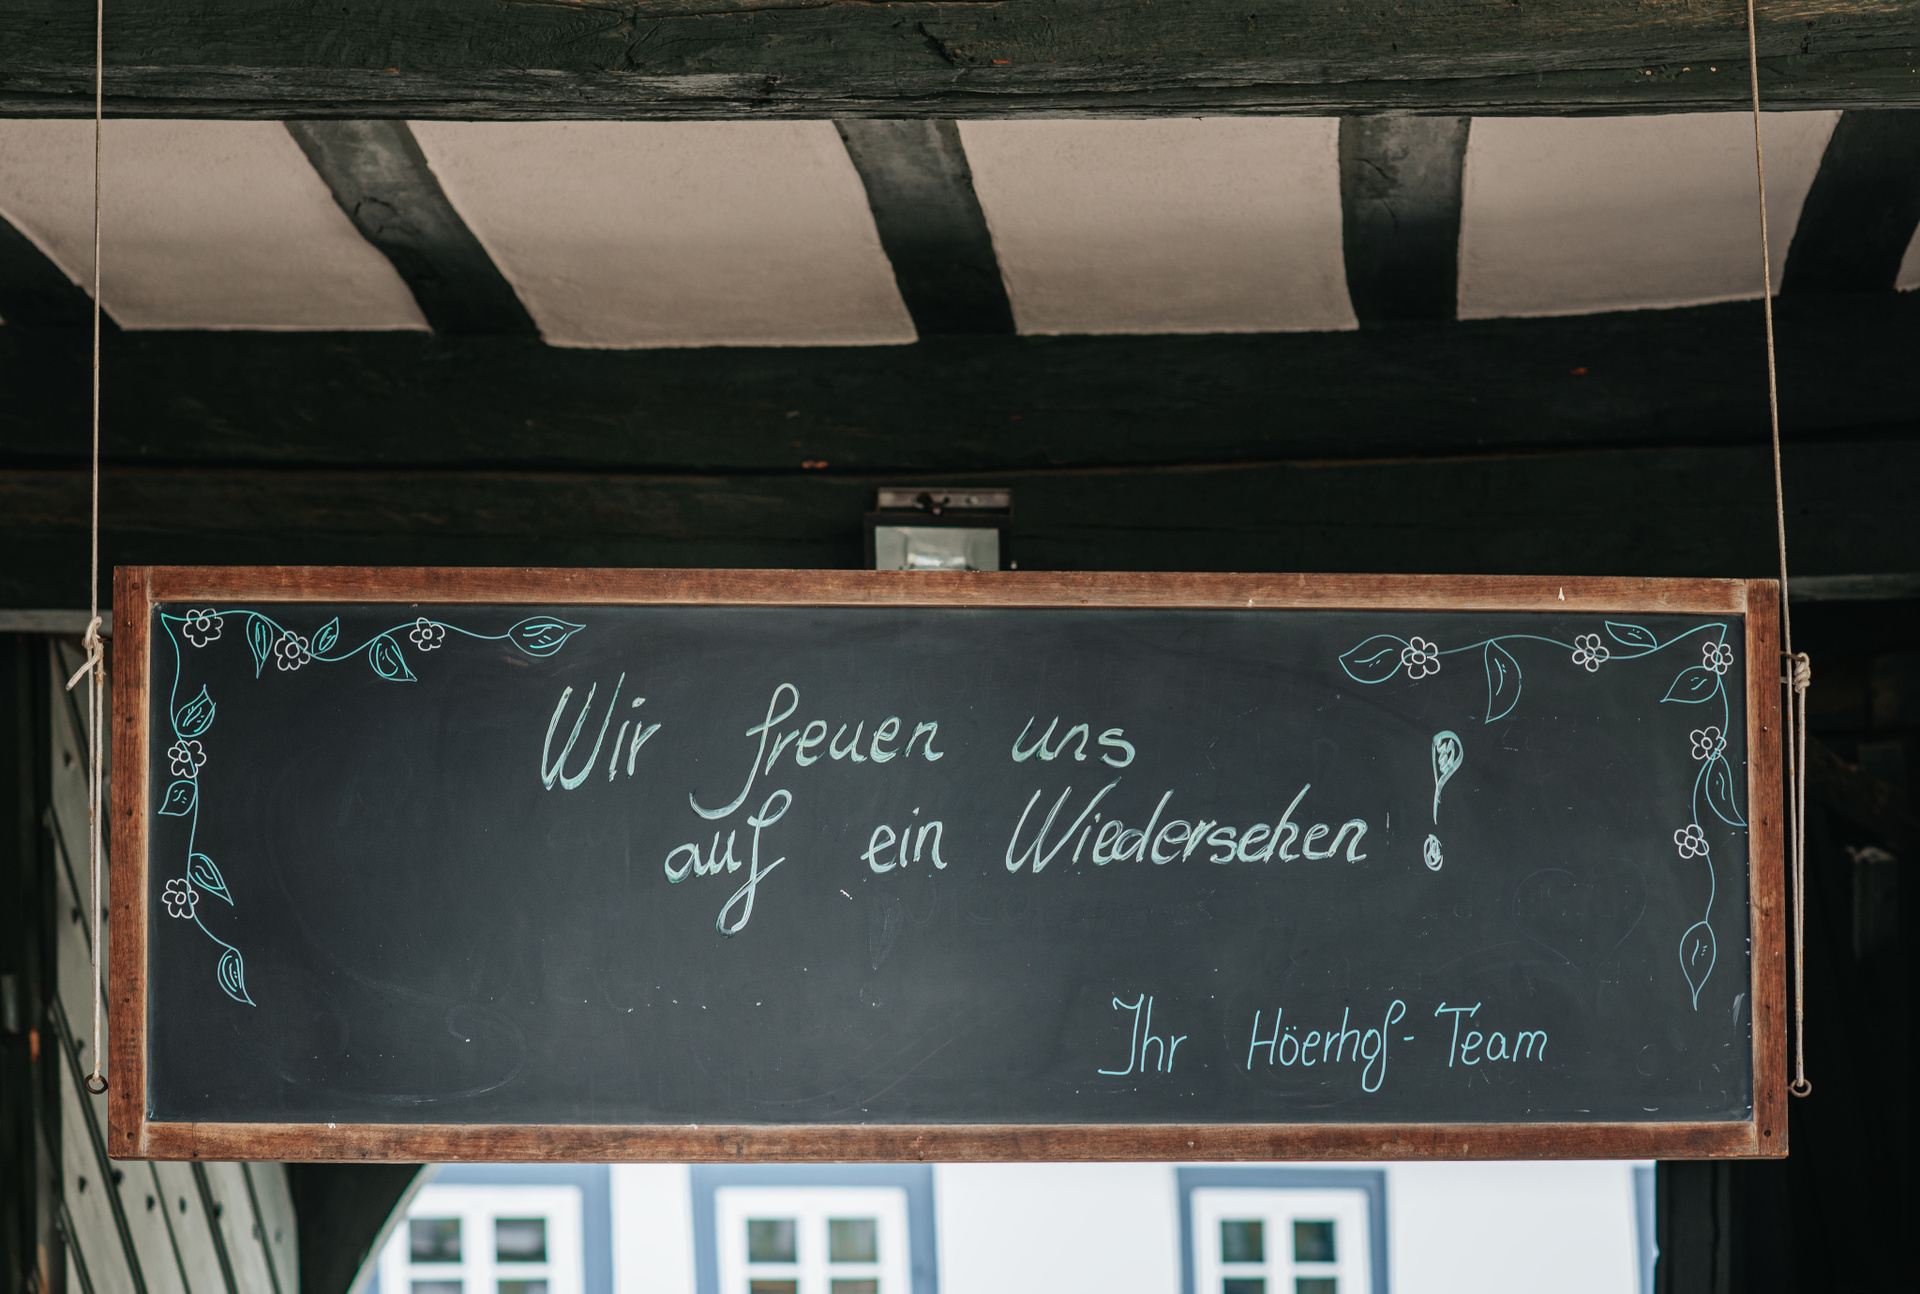 Wir freuen uns
auf ein Wiedersehen !
Ihr Höerhof-Team